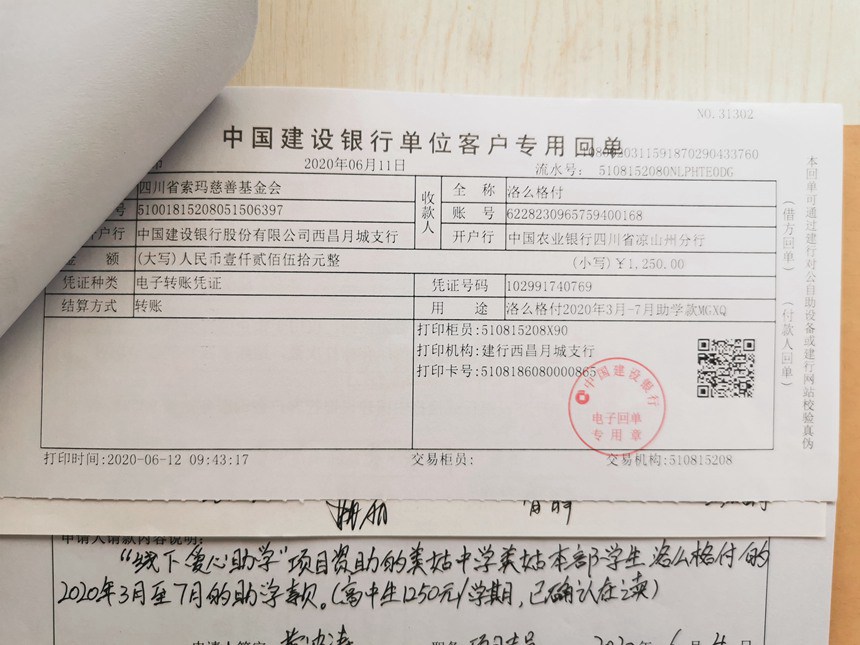 NO.31302
中国建设银行单位客户专用回单
2020年06月11日
流水号: 5108152080NLPHTE0DG
四川省索玛慈善基金会
收款人
全 称 洛么格付
号 51001815208051506397
账 号 6228230965759400168
户行 中国建设银行股份有限公司西昌月城支行
开户行 中国农业银行四川省凉山州分行
金 额 (大写)人民币壹仟贰佰伍拾元整 (小写)¥1,250.00
凭证种类 电子转账凭证 凭证号码 102991740769
结算方式 转账 用 途 洛么格付2020年3月-7月助学款MGXQ
打印柜员:510815208X90
打印机构:建行西昌月城支行
打印卡号:5108186080000865
中国建设银行
电子回单
专用章
打印时间:2020-06-12 09:43:17 交易柜员: 交易机构:510815208
本回单可通过建行对公自助设备或建行网站校验真伪
(借方回单)
(付款人回单)
申请人请款内容说明:
“线下爱心助学”项目资助的美姑中学美姑本部学生洛么格付的
2020年3月至7月的助学款。(高中生1250元/学期,已确认在读)